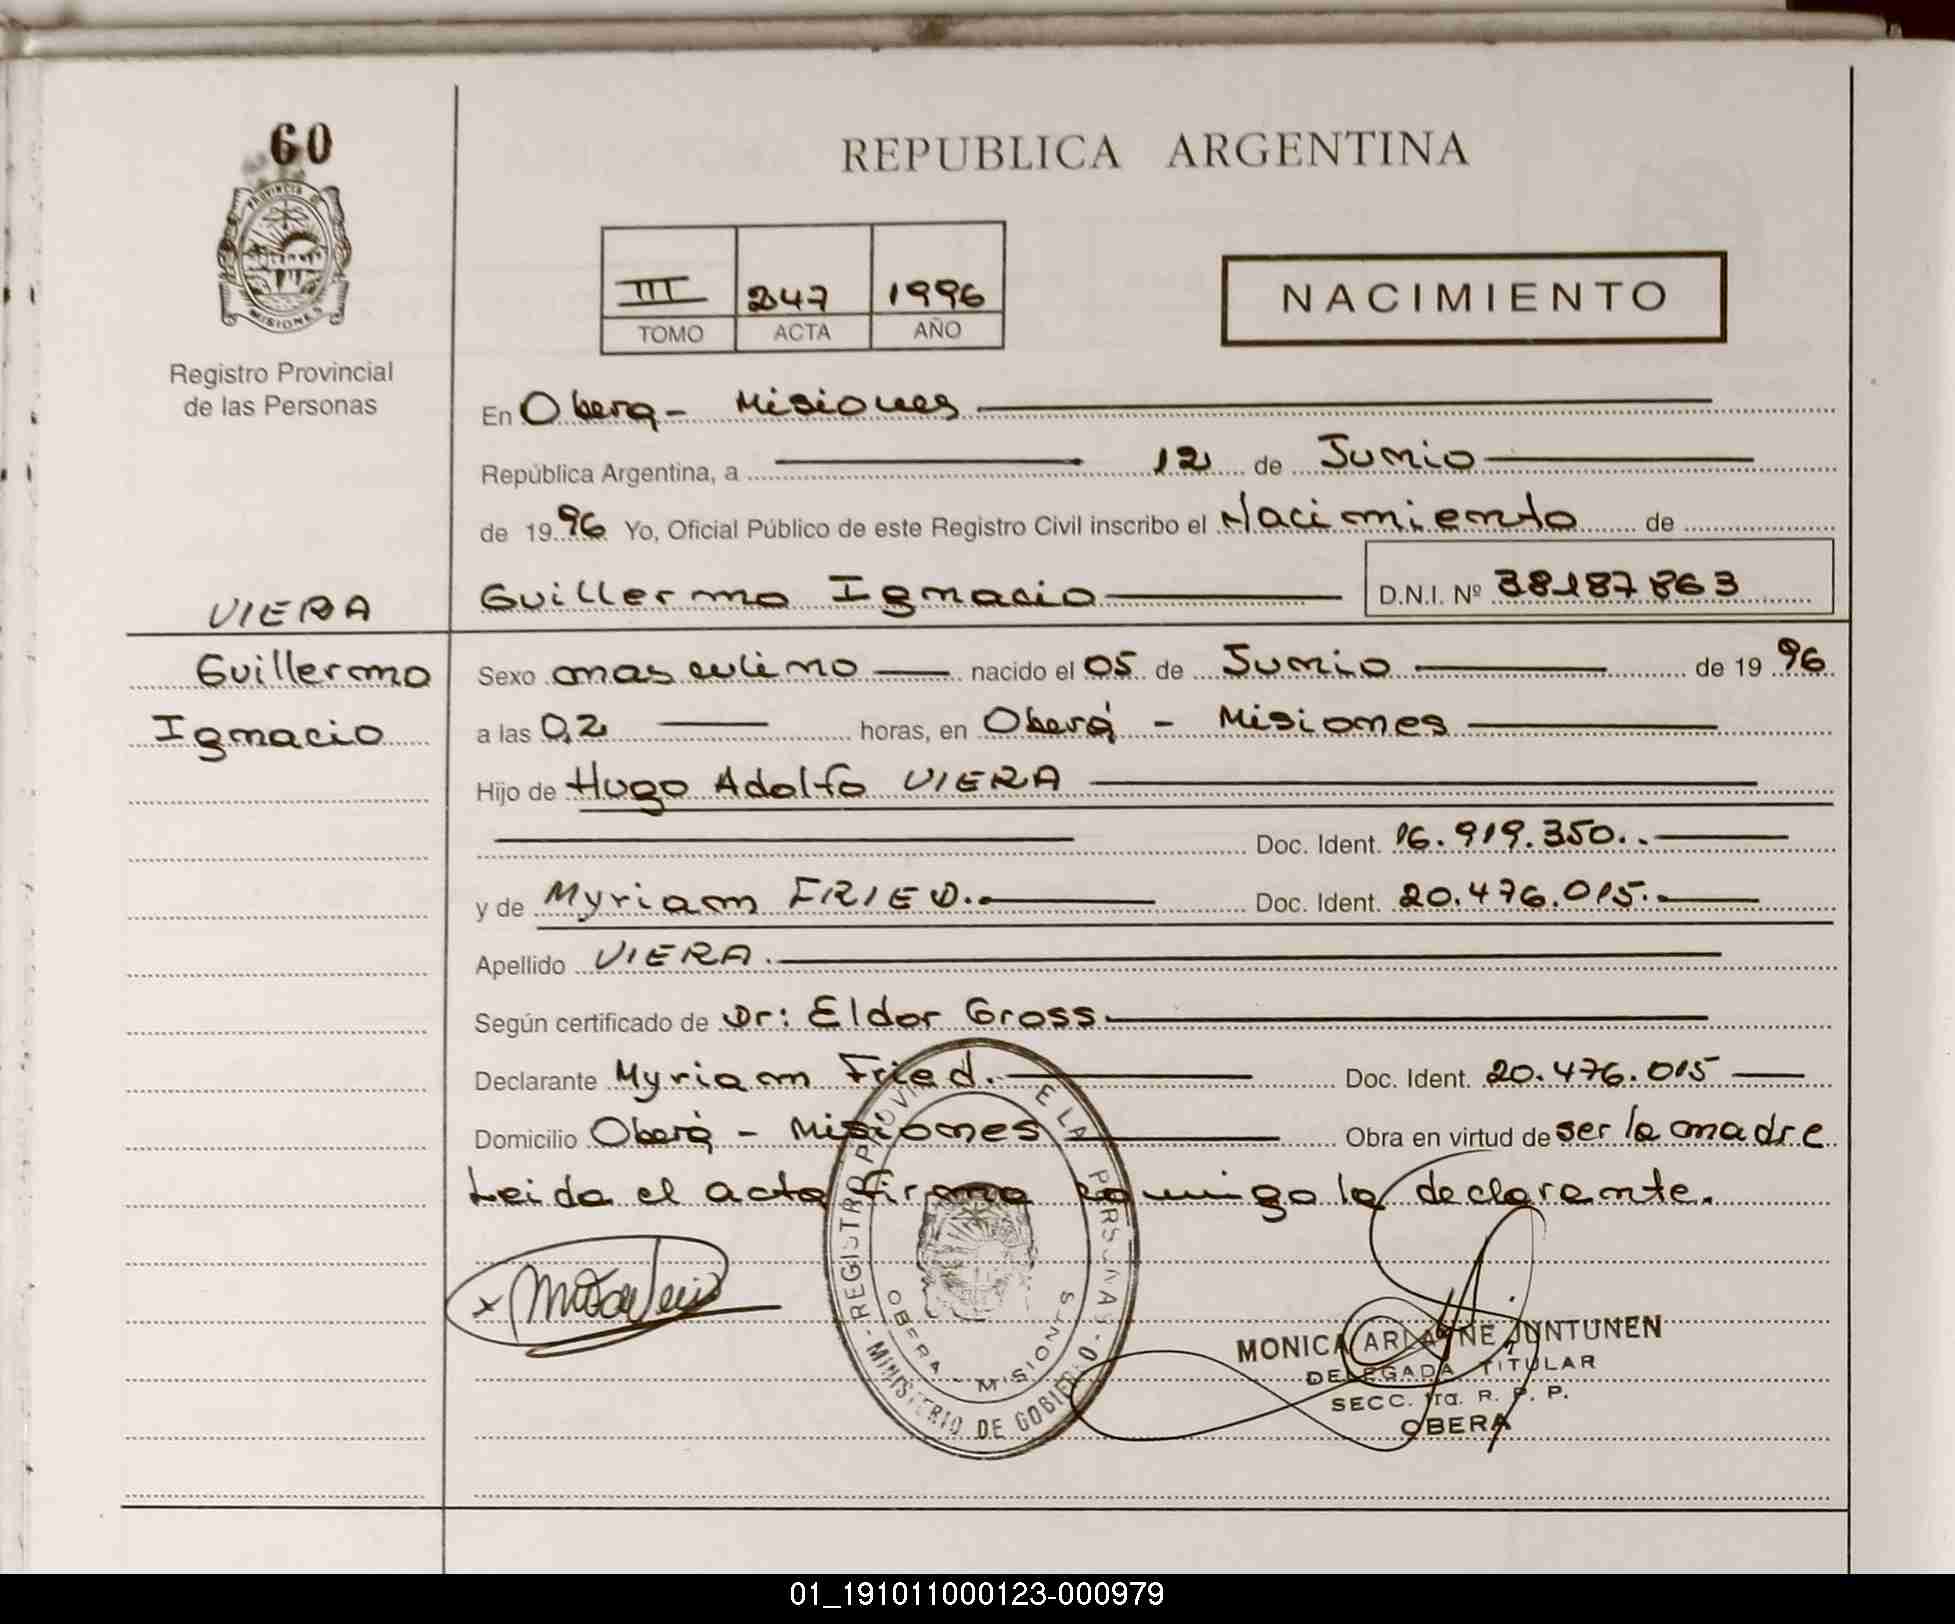 60
REPUBLICA ARGENTINA
PROVINCIA DE
MISIONES
III 247 1996
TOMO ACTA AÑO
NACIMIENTO
Registro Provincial
de las Personas
En Obera - Misiones
República Argentina, a 12 de Junio
de 1996 Yo, Oficial Público de este Registro Civil inscribo el Nacimiento de
Guillermo Ignacio D.N.I. Nº 38187863
VIERA
Guillermo
Ignacio
Sexo masculino nacido el 05 de Junio de 1996
a las 02 horas, en Oberá - Misiones
Hijo de Hugo Adolfo VIERA
Doc. Ident. 16.919.350.
y de Myriam FRIED. Doc. Ident. 20.476.015.
Apellido VIERA.
Según certificado de Dr: Eldor Gross
Declarante Myriam Fried. Doc. Ident. 20.476.015
Domicilio Oberá - Misiones Obra en virtud de ser la madre
Leida el acta firma conmigo la declarante.
REGISTRO PROVIN E LA PERSONAS - MINISTERIO DE GOBIERNO -
OBERA - MISIONES
MONICA ARIANNE JUNTUNEN
DELEGADA TITULAR
SECC. 1ra. R. P. P.
OBERA
01_191011000123-000979